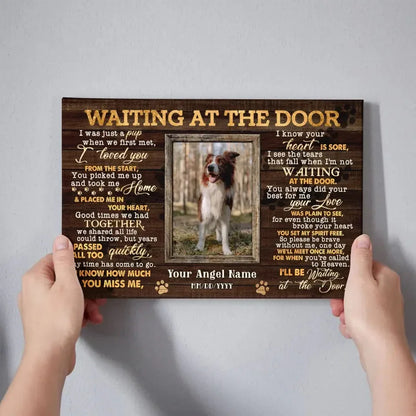 WAITING AT THE DOOR
I was just a pup
when we first met,
I loved you
FROM THE START,
You picked me up
and took me Home
& PLACED ME IN
YOUR HEART,
Good times we had
TOGETHER
we shared all life
could throw, but years
PASSED
ALL TOO quickly,
my time has come to go.
I KNOW HOW MUCH
YOU MISS ME,
I know your
heart IS SORE,
I see the tears
that fall when I'm not
WAITING
AT THE DOOR.
You always did your
best for me your Love
WAS PLAIN TO SEE,
for even though it
broke your heart
YOU SET MY SPIRIT FREE.
So please be brave
without me, one day
WE'LL MEET ONCE MORE,
FOR WHEN YOU'RE CALLED
to Heaven.
I'LL BE Waiting
at the Door
Your Angel Name
MM/DD/YYYY